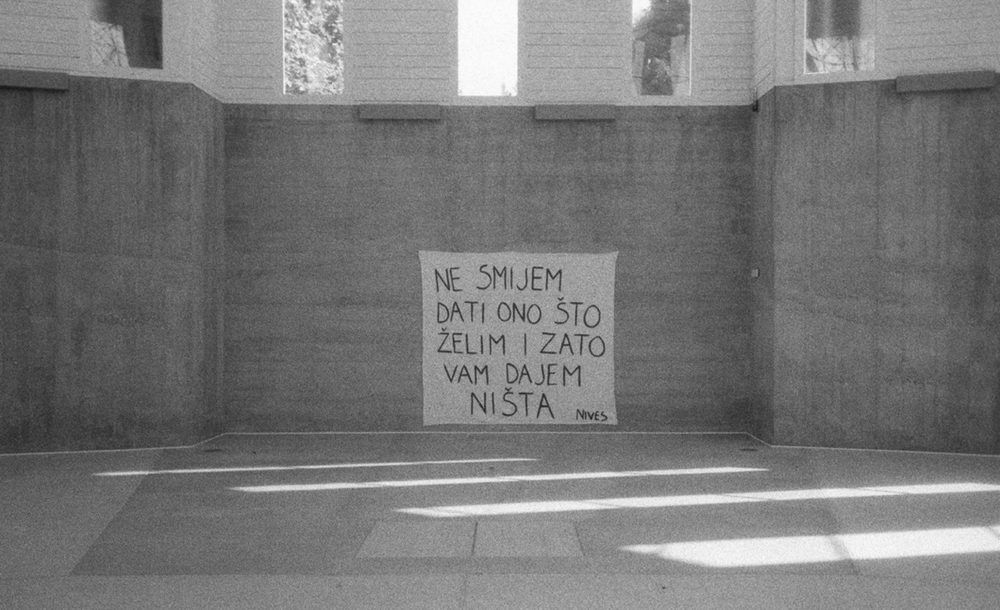 NE SMIJEM
DATI ONO ŠTO
ŽELIM I ZATO
VAM DAJEM
NIŠTA
NIVES